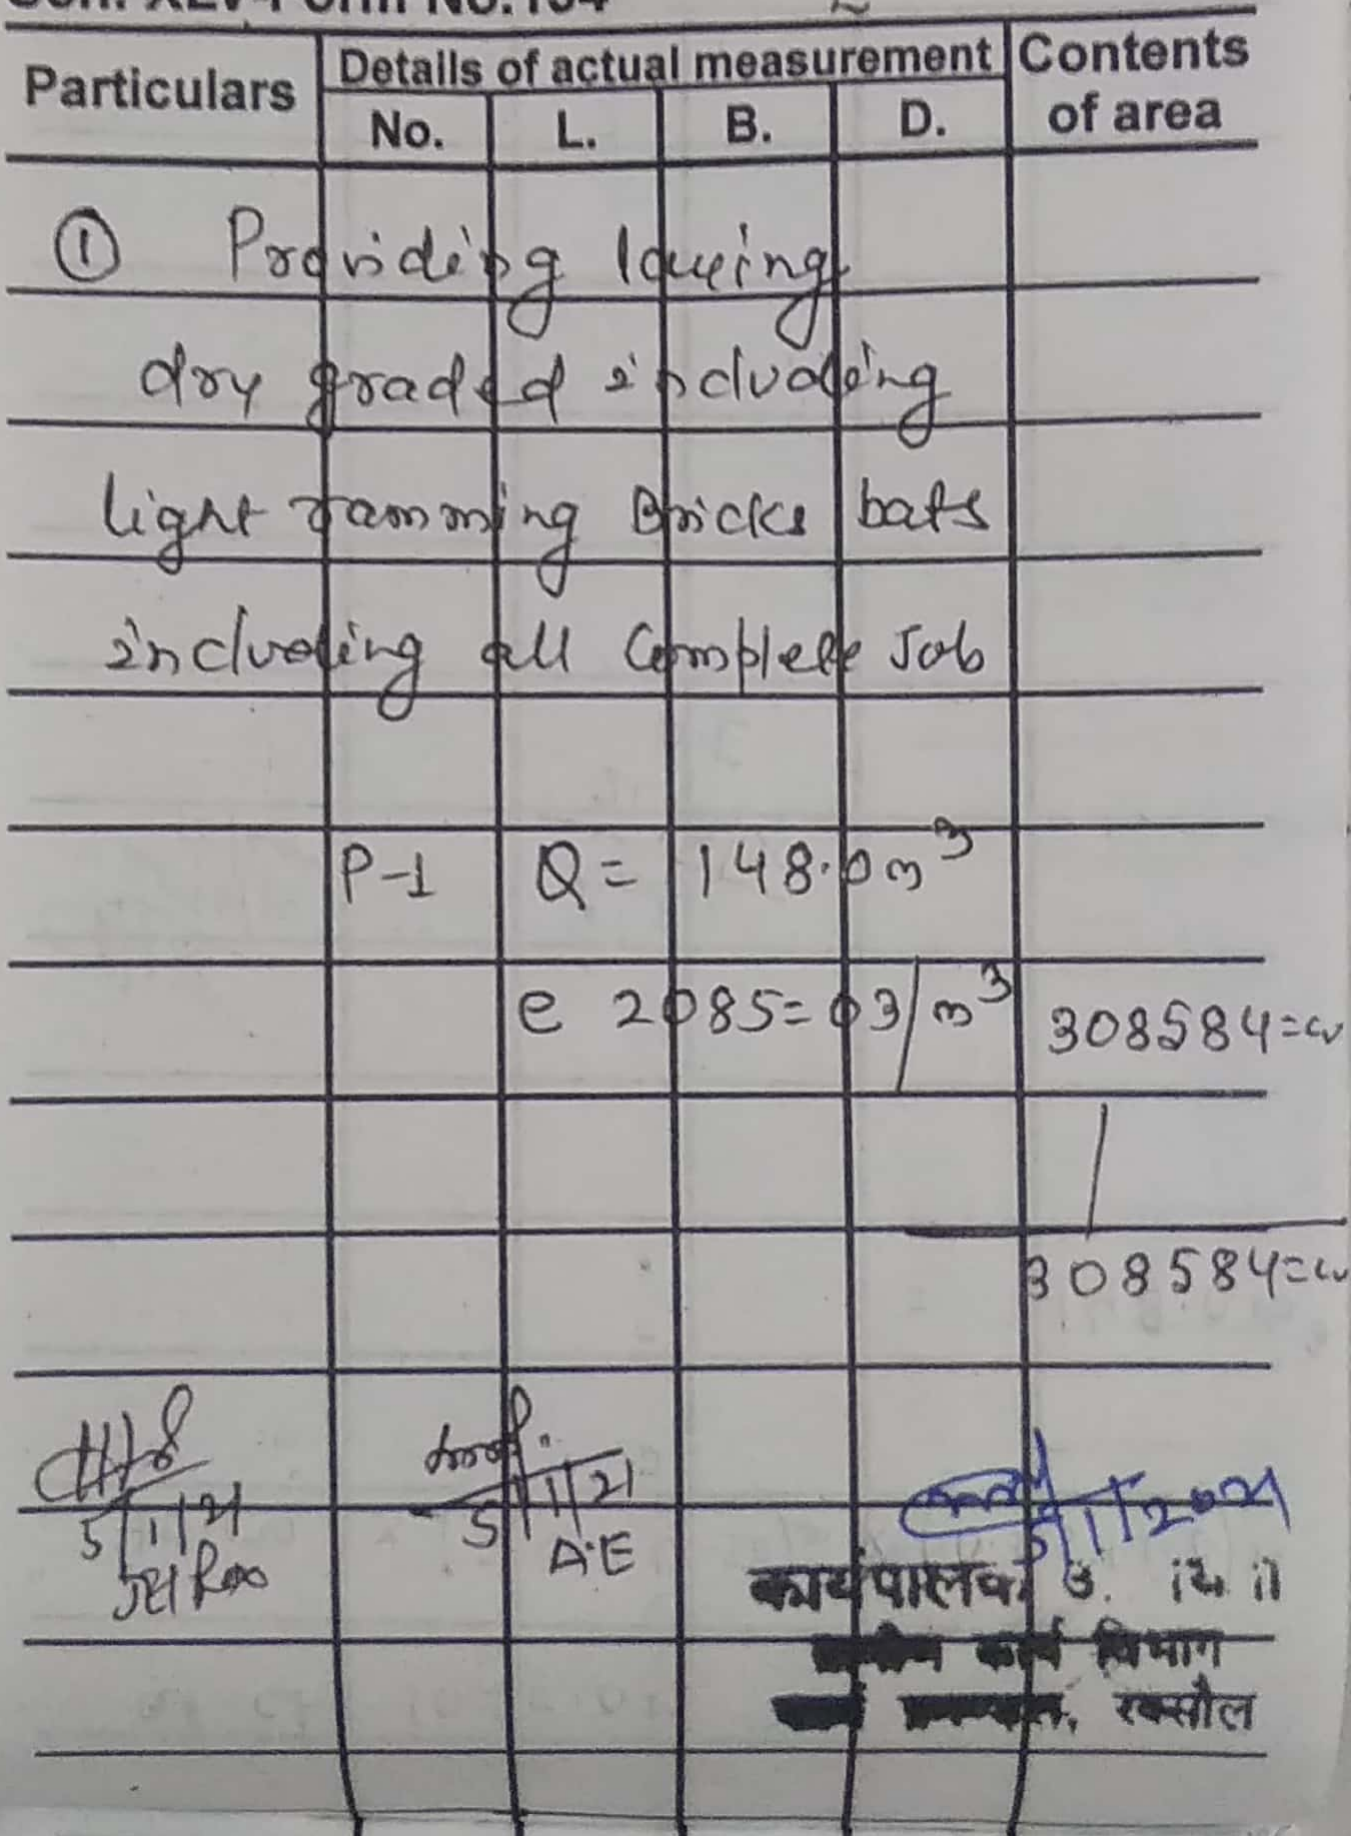 Particulars Details of actual measurement Contents of area
No. L. B. D.
① Providing laying
dry graded including
light ramming Bricks bats
including all Complete Job
P-1 Q = 148.0 m³
@ 2085=03/m³ 308584=00
308584=00
5/1/21 5/1/21 5/1/2021
A.E
कार्यपालक
कार्य विभाग
रक्सौल